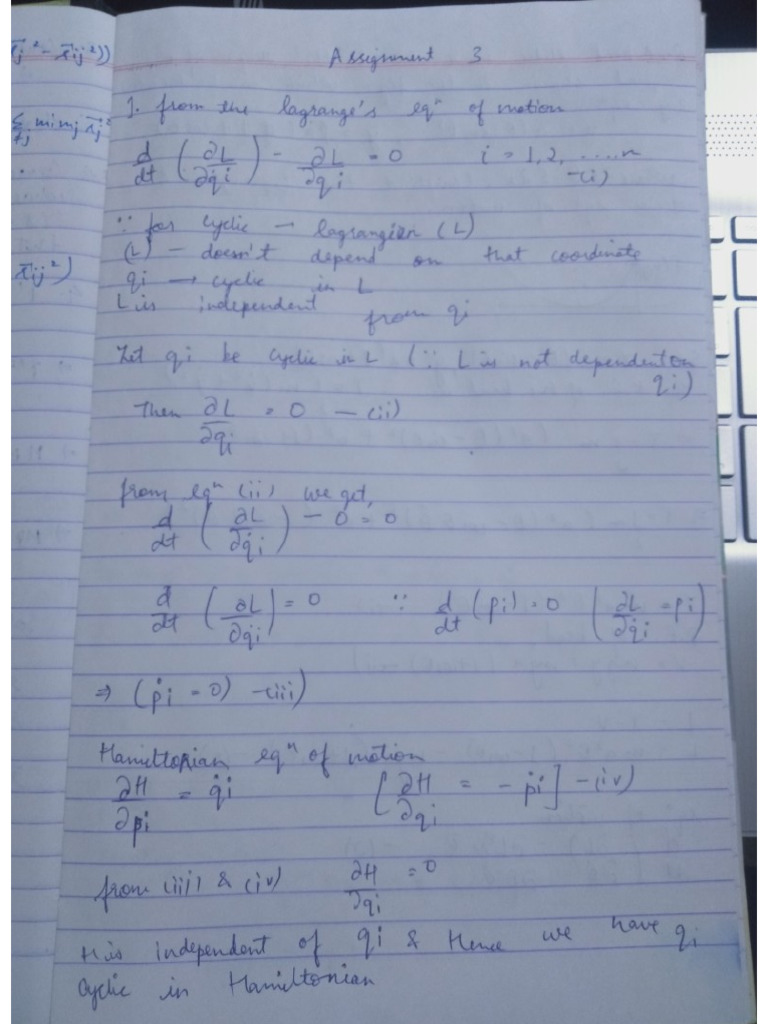 Assignment 3
1. from the lagrange's eqⁿ of motion
d/dt (∂L/∂q̇i) - ∂L/∂qi = 0 i = 1, 2, .....n
-(i)
∵ for cyclic → lagrangian (L)
(L) - doesn't depend on that coordinate
qi → cyclic in L
L is independent from qi
Let qi be cyclic in L (∵ L is not dependent on
qi)
Then ∂L/∂qi = 0 - (ii)
from eqⁿ (ii) we get,
d/dt (∂L/∂q̇i) - 0 = 0
d/dt (∂L/∂q̇i) = 0 ∵ d/dt (pi) = 0 (∂L/∂q̇i = pi)
⇒ (ṗi = 0) -(iii)
Hamiltonian eqⁿ of motion
∂H/∂pi = q̇i [∂H/∂qi = - ṗi] -(iv)
from (iii) & (iv) ∂H/∂qi = 0
H is independent of qi & Hence we have qi
cyclic in Hamiltonian